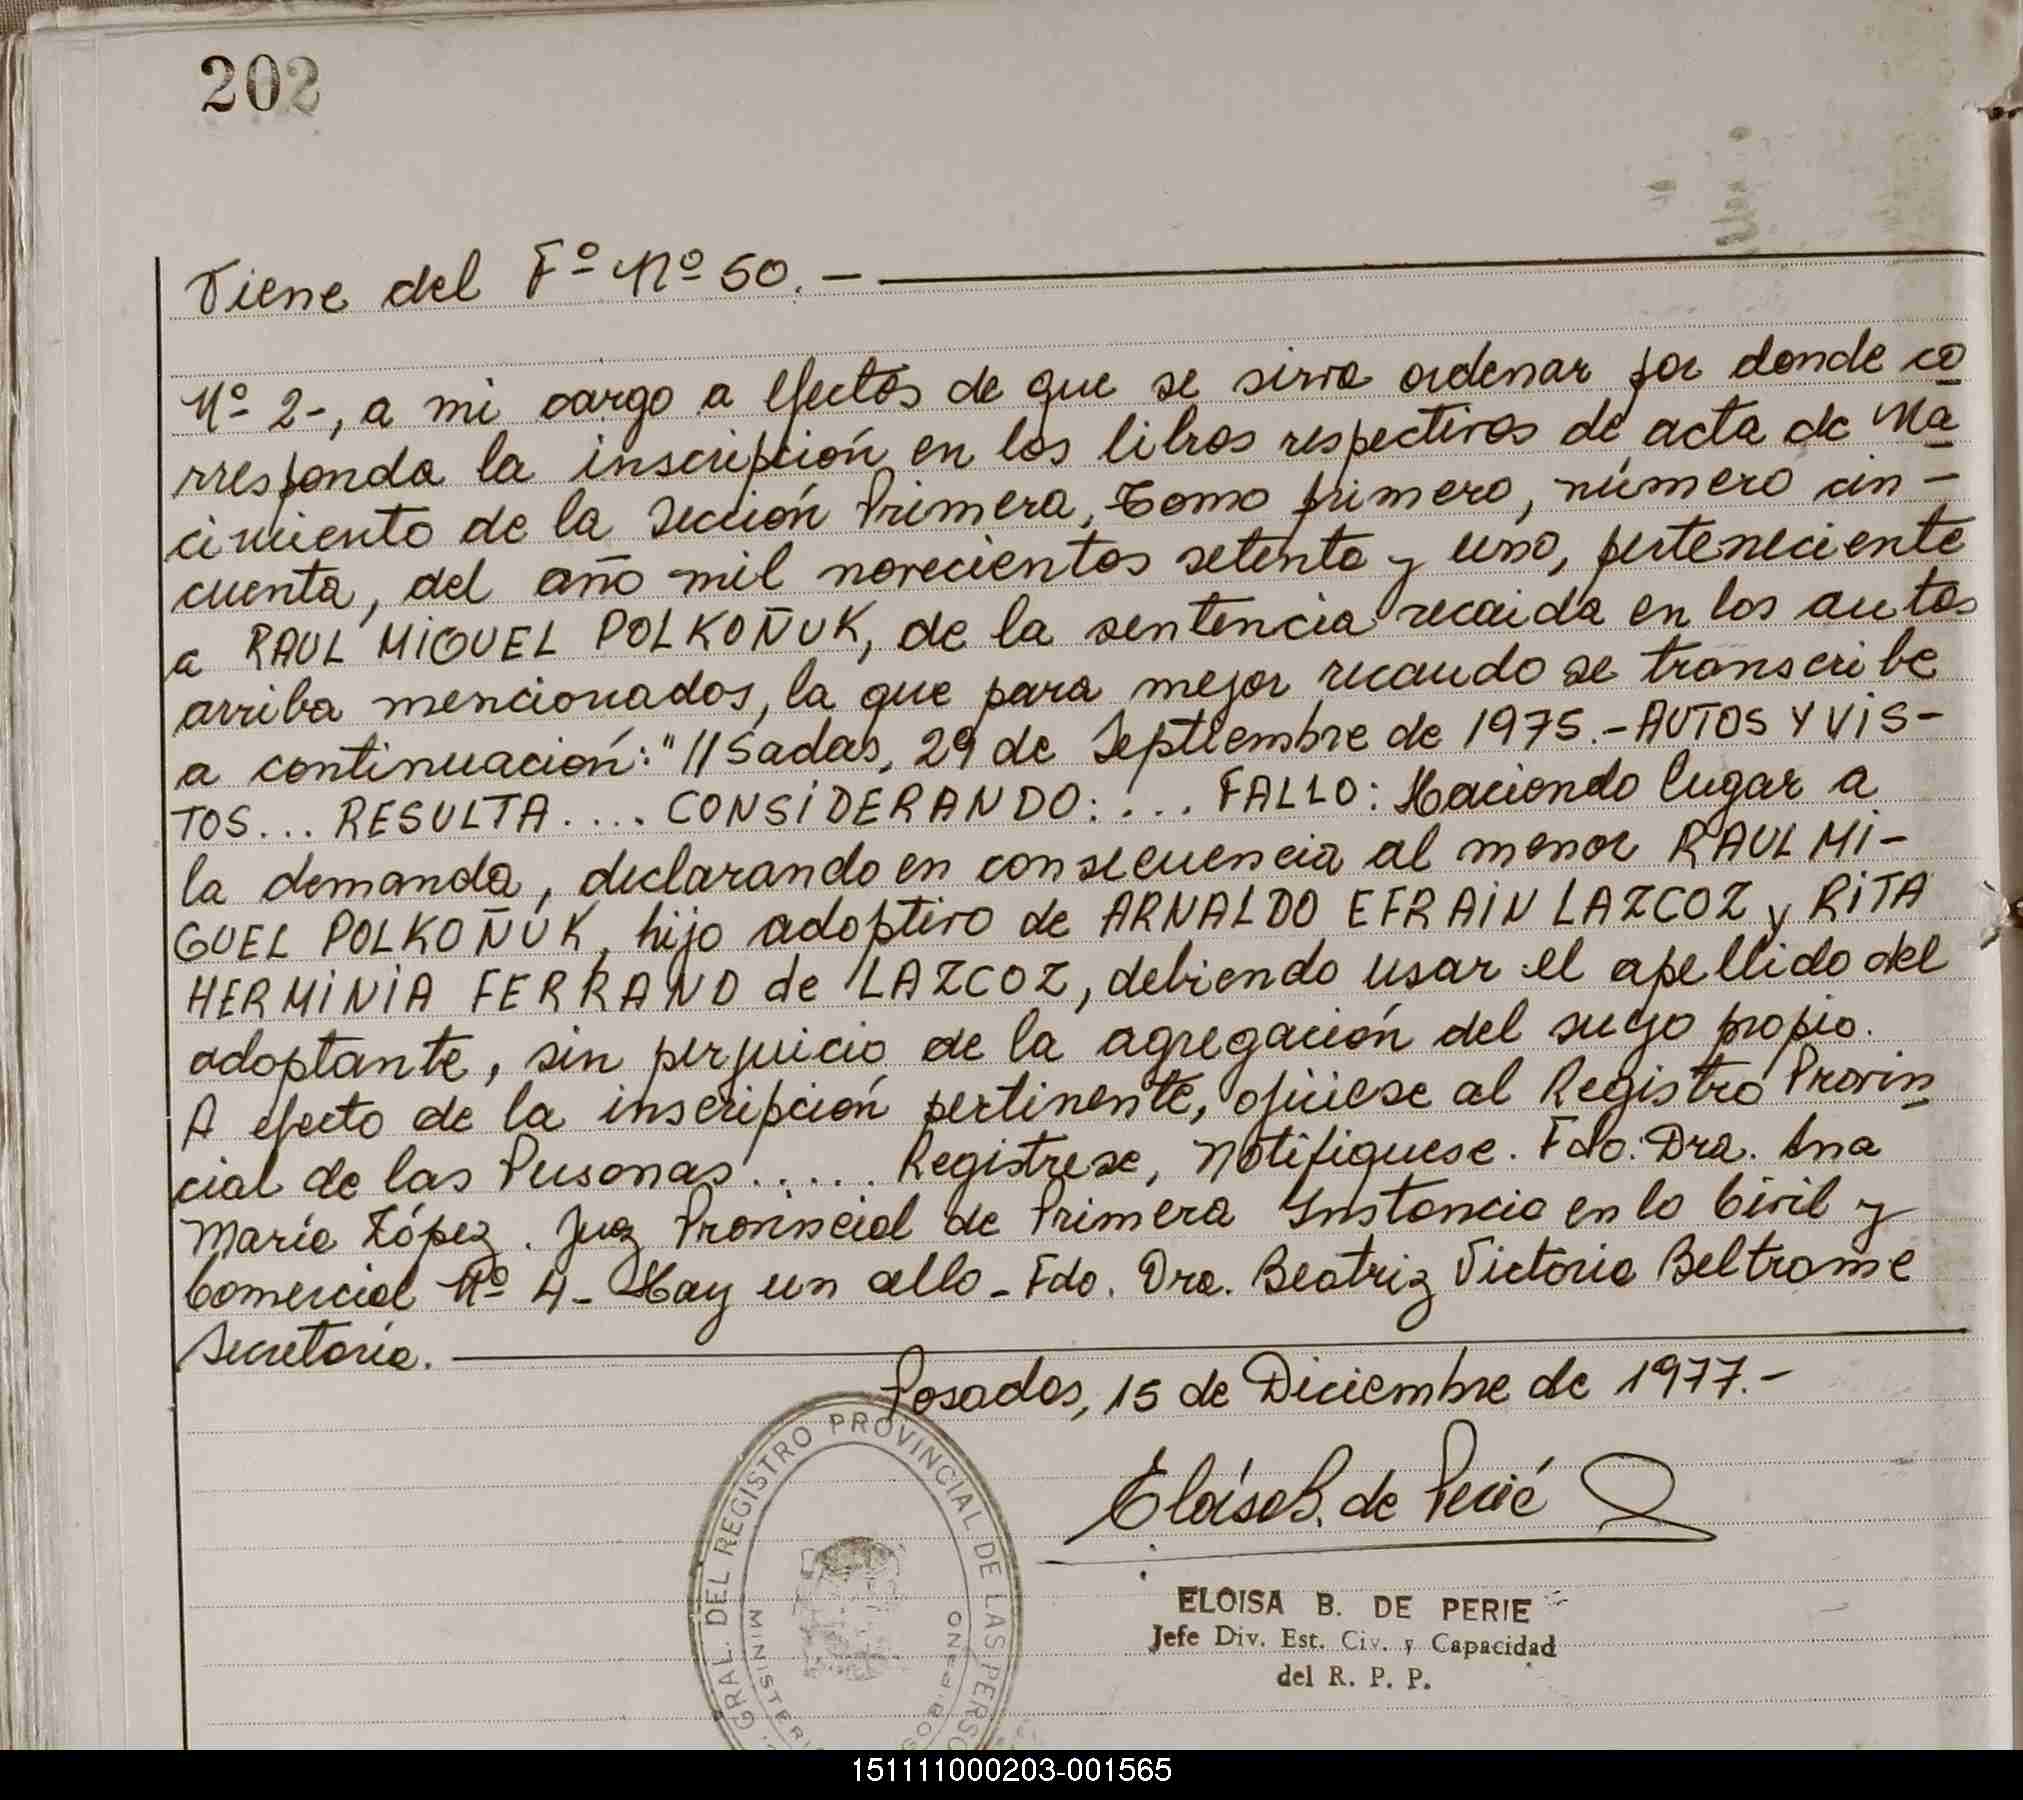 202
Viene del Fº Nº 50. —
Nº 2-, a mi cargo a efectos de que se sirva ordenar por donde co
rresponda la inscripción en los libros respectivos de acta de Na
cimiento de la Sección Primera, Tomo primero, número cin-
cuenta, del año mil novecientos setenta y uno, perteneciente
a RAUL MiGUEL POLKOÑUK, de la sentencia recaida en los autos
arriba mencionados, la que para mejor recaudo se transcribe
a continuación: "//sadas, 29 de Septiembre de 1975.- AUTOS Y ViS-
TOS... RESULTA.... CONSiDERANDO:.... FALLO: Haciendo lugar a
la demanda, declarando en consecuencia al menor RAUL Mi-
GUEL POLKOÑUK, hijo adoptivo de ARNALDO EFRAiN LAZCOZ y RiTA
HERMiNiA FERRAND de LAZCOZ, debiendo usar el apellido del
adoptante, sin perjuicio de la agregación del suyo propio.
A efecto de la inscripción pertinente, ofíciese al Registro Provin
cial de las Personas...... Registrese, Notifiquese. Fdo. Dra. Ana
María López. Juez Provincial de Primera Instancia en lo Civil y
Comercial Nº 4- Hay un sello - Fdo. Dra. Beatriz Victoria Beltrame
Secretaria.
Posadas, 15 de Diciembre de 1977.-
Eloisa B. de Perié
ELOISA B. DE PERIE
Jefe Div. Est. Civ. y Capacidad
del R. P. P.
GRAL. DEL REGISTRO PROVINCIAL DE LAS PERSO
MINISTERI
GOBIERNO
151111000203-001565